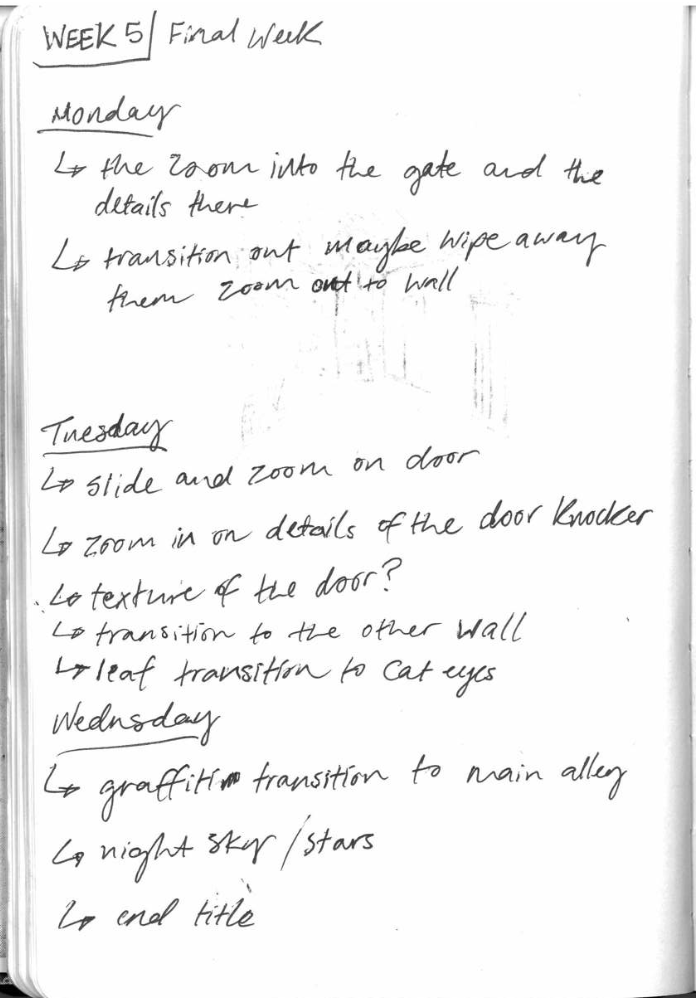 WEEK 5 | Final Week
Monday
↳ the zoom into the gate and the
details there
↳ transition out maybe wipe away
them zoom out to wall
Tuesday
↳ slide and zoom on door
↳ zoom in on details of the door knocker
↳ texture of the door?
↳ transition to the other wall
↳ leaf transition to cat eyes
Wednsday
↳ graffiti transition to main alley
↳ night sky / stars
↳ end title